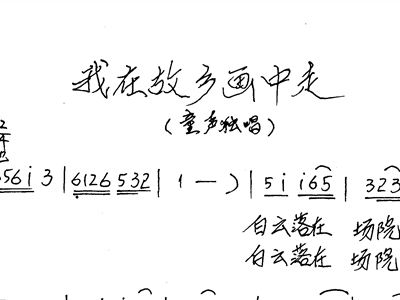 我在故乡画中走
（童声独唱）
656i 3 | 6126 532 | 1 — ) | 5 i i 6 5 | 323
白云落在 场院
白云落在 场院